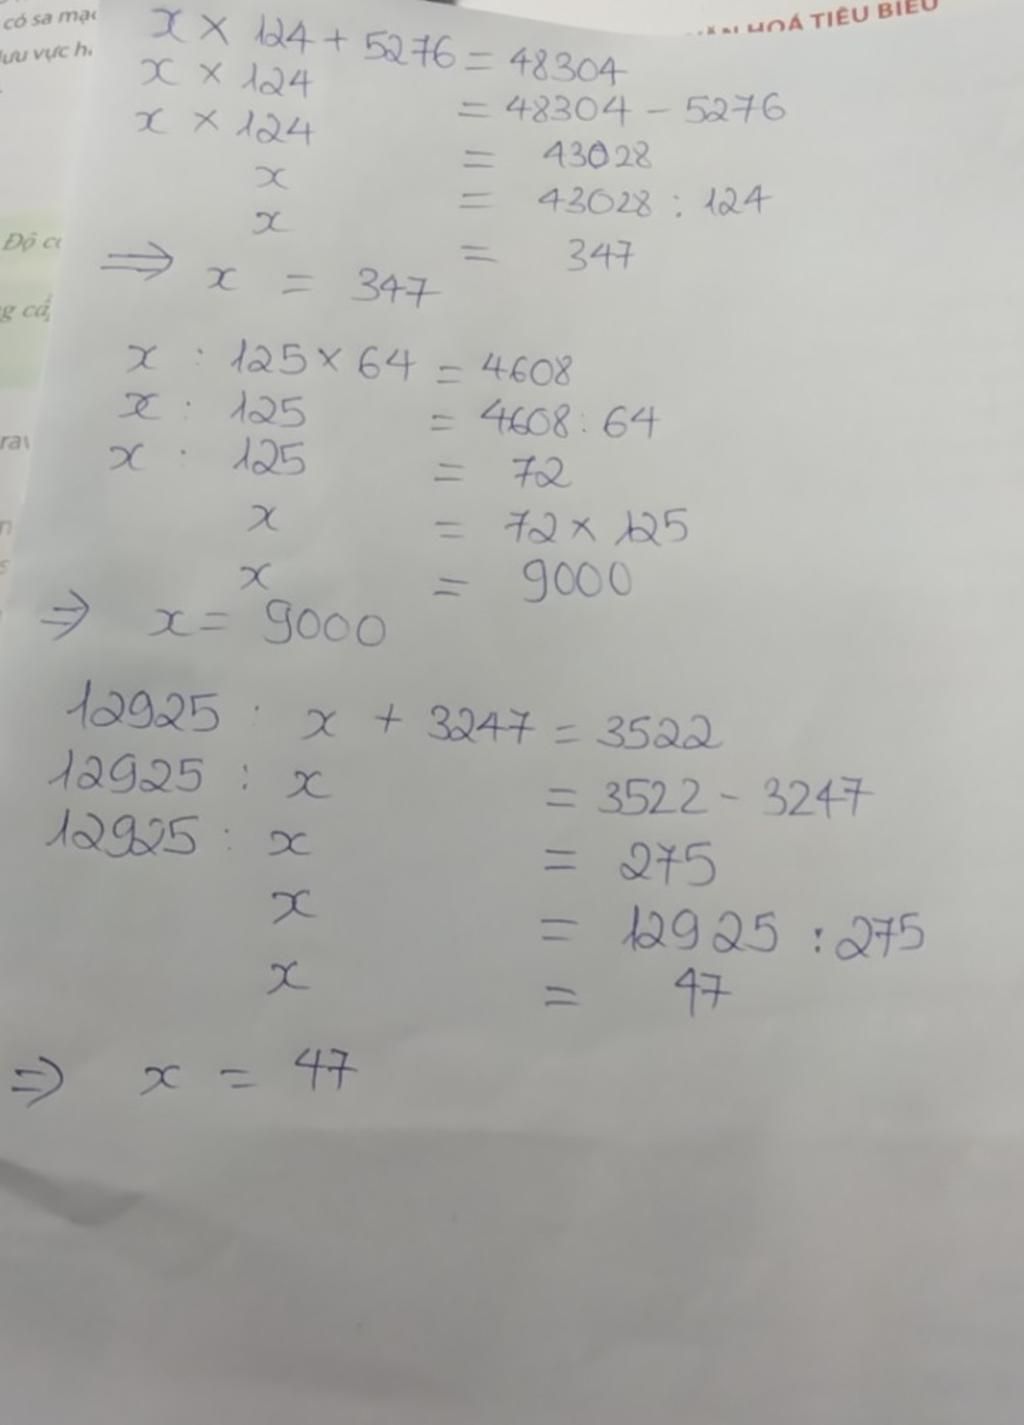 có sa mạc
lưu vực h
VĂN HOÁ TIÊU BIỂU
x × 124 + 5276 = 48304
x × 124 = 48304 - 5276
x × 124 = 43028
x = 43028 : 124
x = 347
⇒ x = 347
Độ c
g cấ
x : 125 × 64 = 4608
x : 125 = 4608 : 64
x : 125 = 72
x = 72 × 125
x = 9000
⇒ x = 9000
12925 : x + 3247 = 3522
12925 : x = 3522 - 3247
12925 : x = 275
x = 12925 : 275
x = 47
⇒ x = 47